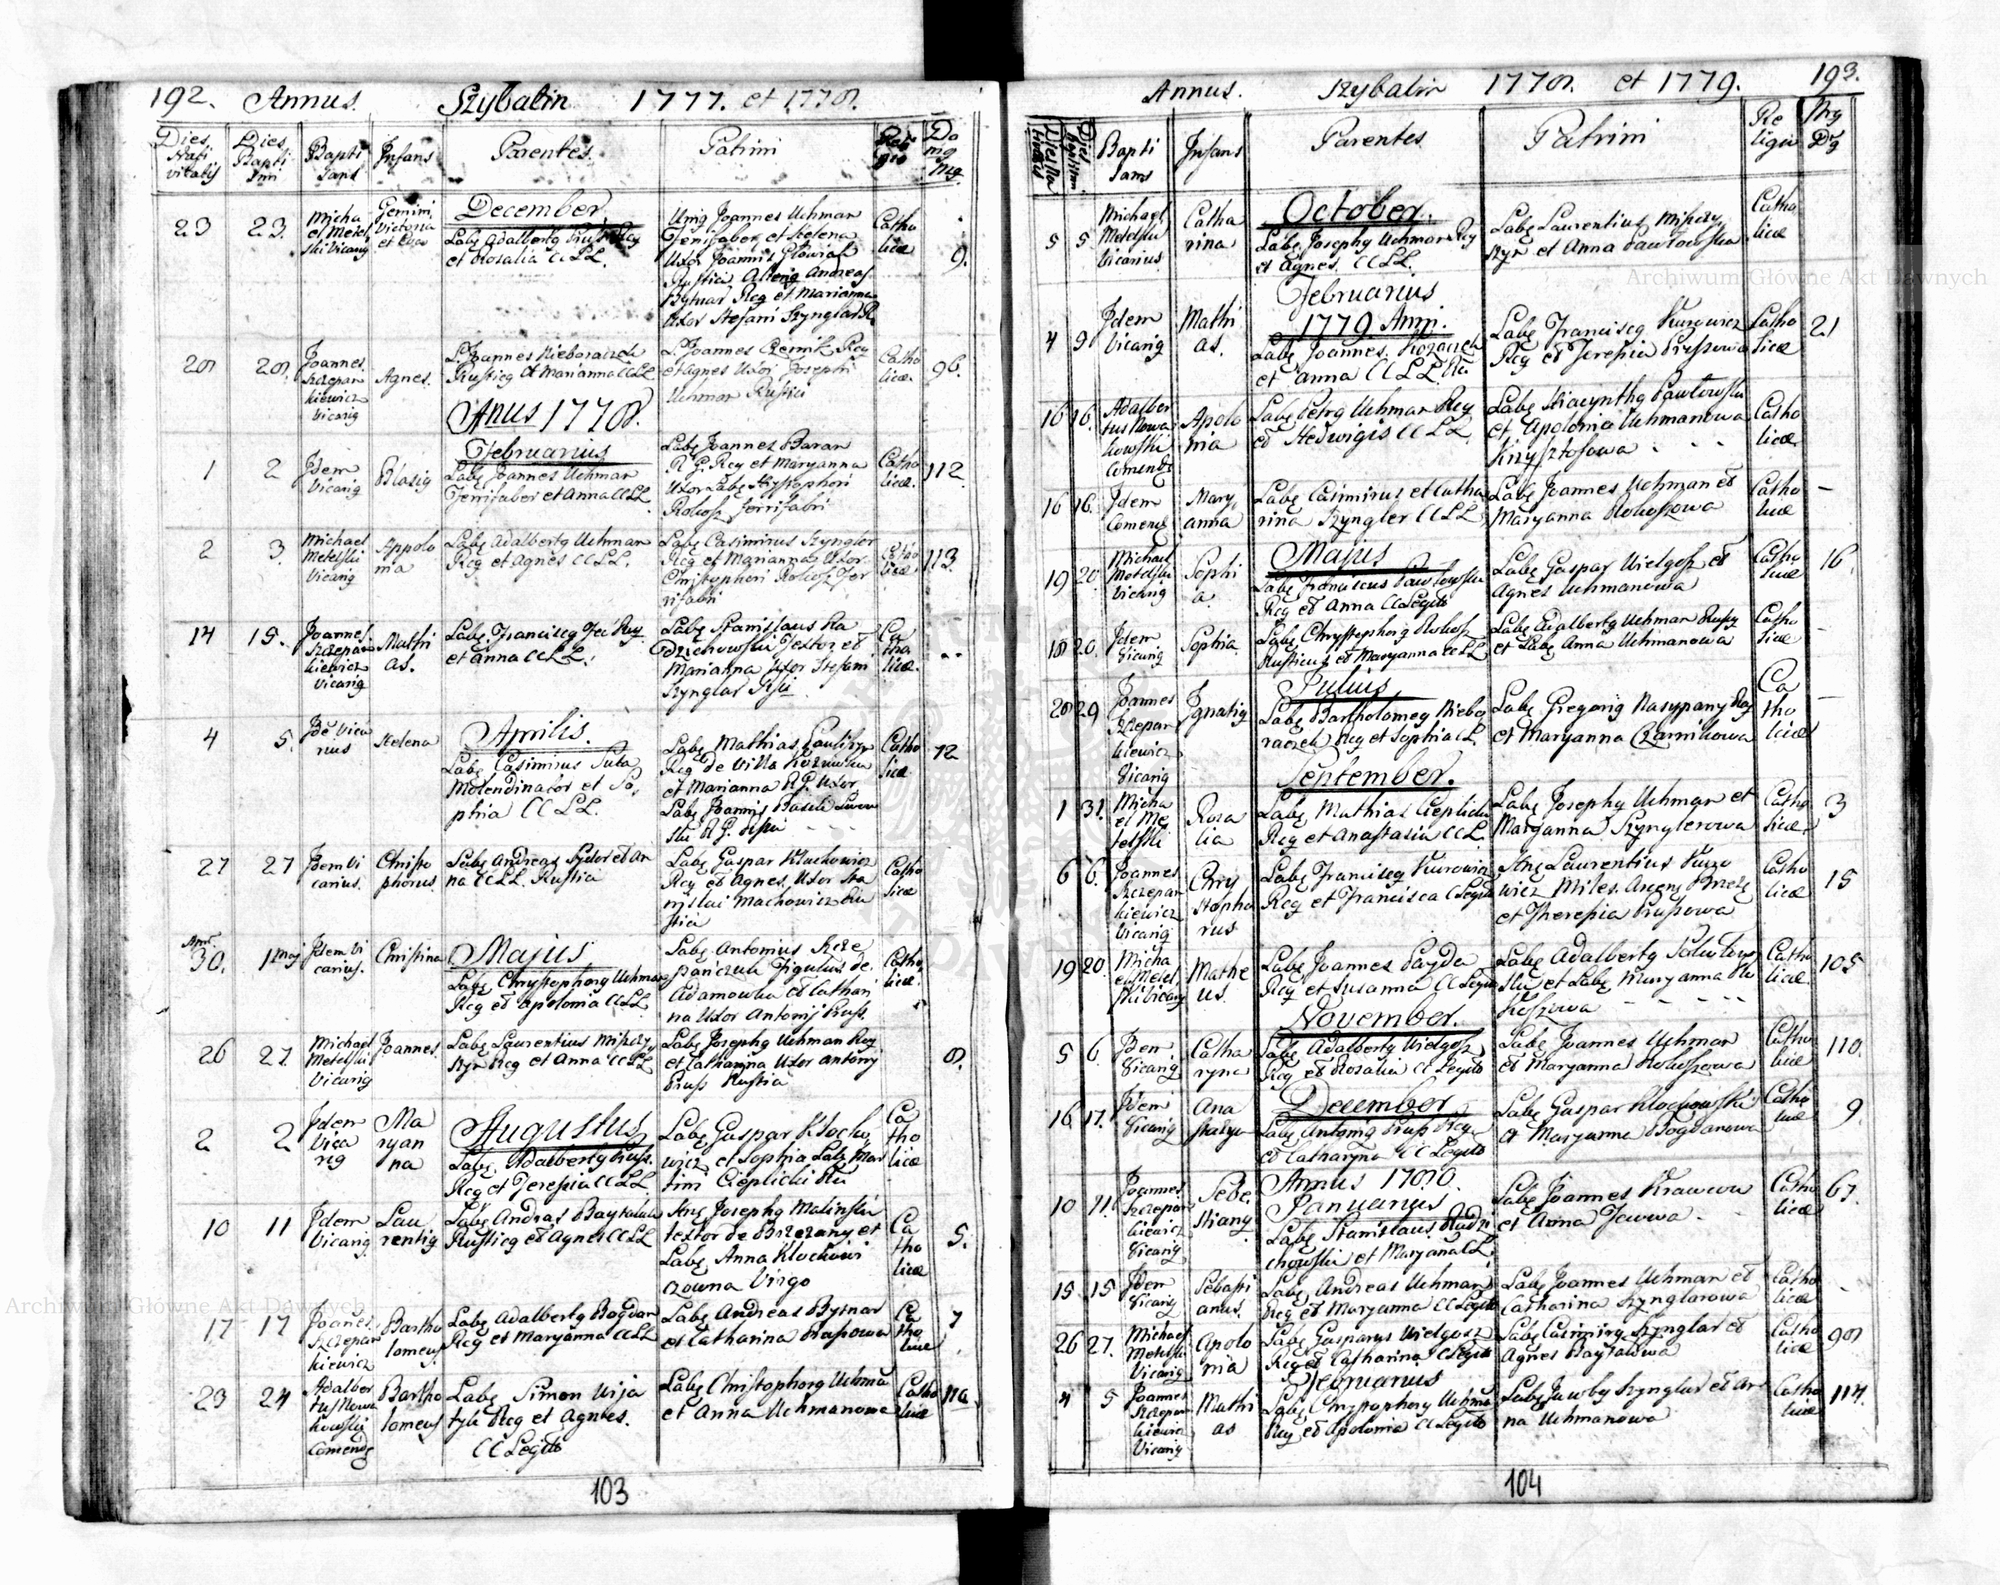 192. Annus. Szybalin 1777. et 1778.
Dies Nati vitatis
Dies Bapti smi
Bapti sans
Infans
Parentes
Patrini
Reli gio
Do mg Nrg.
December
23 23. Micha el Metel ski Vicarig
Gemini Victoria et Eva
et Rosalia CCLL.
Unig Joannes Uchman
Ferrifaber et Helena
Uxor Joannis
Andreas
Bytnar Rcg et Marianna
Uxor Stefani Szynglar R
Catho licae
9.
28 28. Joannes Szczepan kiewicz Vicarig
Agnes.
Rusticg et Marianna CCLL
L. Joannes Czernik Rcg
et Agnes Uxor Josephi
Uchman Rustici
Catho licae.
96.
Anus 1778.
Februarius
1 2 Idem Vicarig
Blasig
Labg Joannes Uchman
Ferrifaber et Anna CCLL.
Labg Joannes Baran
R. G. Rcg et Maryanna
Uxor Labg Krystophori
Rokosz ferrifabri
Catho licae.
112.
2 3. Michael Metelski Vicarig
Appolo nia
Labg Adalbertg Uchman
Rcg et Agnes CCLL.
Labg Casimirus Szyngler
Rcg et Marianna Uxor
Christophori Rokosz Fer
rifabri
Catho licae
113.
14 15. Joannes Szczepan kiewicz Vicarig
Mathi as.
Labg Franciscg Rcg
et Anna CCLL.
Labg Stanislaus Ra
dziechowski Textor et
Marianna Uxor Stefani
Szynglar Rsti
Ca tho licae
4 5. Vica rius
Helena
Aprilis.
Labg Casimirus
Molendinator et So
phia CC LL.
Labg Mathias
Rcg de Villa
et Marianna R.G. Uxor
Labg Joannis
Catho licae
12
27 27 Idem Vi carius.
Christo phorus
Labg Andreas Sydor et An
na CCLL. Rustici
Labg Gaspar Klachowicz
Rcg et Agnes Uxor Sta
nislai Machowicz Ru
stici
Catho licae
Apr. 30. 1 maj Idem Vi carius.
Christina
Majus
Labg Chrystophorg Uchman
Rcg et Apolonia CCLL
Labg Antonius Szcze
paniczuk Figulus de
Adamowka et Cathari
na Uxor Antonij Pruss.
Catho licae.
26 27. Michael Metelski Vicarig
Joannes.
Labg Laurentius Miszczy
szyn Rcg et Anna CCLL
Labg Josephg Uchman Rcg
et Catharina Uxor Antonij
Pruss Rustici
8.
2 2 Idem Vica rig
Ma ryan na
Augustus
Labg. Adalbertg Pruss.
Rcg et Teresia CCLL
Labg Gaspar Klocho
wicz et Sophia Labg Mar
tini Cieplicki Ru
Ca tho licae
10 11 Idem Vicarig.
Lau rentig
Labg Andras Baytala
Rusticg et Agnes CCLL
Josephg Malinski
textor de Brzezany et
Labg Anna Klochowi
czowna Virgo
Ca tho licae
5.
17 17 Joanes Szczepan kiewicz
Bartho lomeus
Labg Adalbertg Bogdan
Rcg et Maryanna CCLL
Labg Andreas Bytnar
et Catharina Prussowa
Ca tho licae
7
23 24 Adalber tus Nowa kowski Comendg
Bartho lomeus
Labg Simon Wija
tyk Rcg et Agnes.
CC Legits
Labg Christophorg Uchma
et Anna Uchmanowa
Catho licae
110.
103
Annus. Szybalin 1778. et 1779. 193.
Bapti sans
Infans
Parentes
Patrini
Re ligio
October.
5 5 Michael Metelski Vicarius
Catha rina
Labg Josephg Uchman Rcg
et Agnes. CCLL.
Labg Laurentius Miszczy
szyn et Anna Pawlowska
Catho licae
Februarius
1779 Anni.
4 9 Idem Vicarig
Mathi as.
Labg Joannes
et Anna CCLL.
Labg Franciscg Kurowicz
Rcg et Teresia Prussowa
Catho licae
21
16 16. Adalber tus Nowa kowski Comendg
Apolo nia
Labg Petrg Uchman Rcg
et Hedwigis CCLL
Labg Hiacynthg Pawlowski
et Apolonia Uchmanowa
Krzysztofowa
Catho licae
16 16. Idem Comend
Mary anna
Labg Casimirus et Catha
rina Szyngler CCLL
Labg Joannes Uchman et
Maryanna Rokoszowa
Catho licae
Majus
19 20. Michael Metelski Vicarig
Sophi a.
Labg Franciscus Pawlowski
Rcg et Anna CC Legits
Labg Gaspar Wielgosz et
Agnes Uchmanowa
Catho licae
16
18 20. Idem Vicarig
Sophia.
Labg Chrystophorg Rokosz
Rusticus et Maryanna CCLL
Labg Adalbertg Uchman
et Labg Anna Uchmanowa
Catho licae
Julius
28 29 Joannes Szczepan kiewicz Vicarig
Ignatig
Labg Bartholomeg Niebo
raczek Rcg et Sophia CCL
Labg Gregorig Nasypany Rcg
et Maryanna Czarnikowa
Ca tho licae
September.
1 31. Micha el Me telski
Rosa lia
Labg Mathias Cieplicki
Rcg et Anastasia CCLL.
Labg Josephg Uchman et
Maryanna Szynglerowa
Catho licae.
3
6 6. Joannes Szczepan kiewicz Vicarig
Chry stopho rus
Labg Franciscg Kurowicz
Rcg et Francisca CLegits
Laurentius Kuro
wicz Miles
et Theresia Prussowa
Catho licae
15
19 20. Micha el Metel ski Vicarig
Mathe us.
Labg Joannes Payda
Rcg et Susanna CCLegits
Labg Adalbertg
et Labg Maryanna Ro
koszowa
Catho licae.
105
November.
5 6. Idem Vicarig
Catha ryna
Labg Adalbertg Wielgosz
Rcg et Rosalia CC Legits
Labg Joannes Uchman
et Maryanna Rokoszowa
Catho licae
110.
December
16 17. Idem Vicarig
Ana stazya
Labg Antonig Pruss Rcg
et Catharyna CC Legits
Labg Gaspar Klochowski
et Maryanna Bogdanowa
Catho licae
9.
Annus 1780.
Januarius
10 11. Joannes Szczepan kiewicz Vicarig
Seba stiang
Labg Stanislaus Radzi
chowski et Maryana CCL.
Labg Joannes Krawcu
et Anna
Catho licae
67.
15 15 Idem Vicarig
Sebasti anus.
Labg Andreas Uchman
Rcg et Maryanna CCLegits
Labg Joannes Uchman et
Catharina Szynglarowa
Catho licae
26 27. Michael Metelski Vicarig
Apolo nia
Labg Gasparus Wielgosz
Rcg et Catharina CLegits
Labg Casimirg Szynglar et
Agnes Baytalowa
Catho licae
98
Februarius
4 5 Joannes Szczepan kiewicz Vicarig
Mathi as
Labg Chrystophorg Uchma
Rcg et Apolonia CCLegits
Labg Jacobg Szynglar et An
na Uchmanowa
Catho licae
114.
104
Archiwum Główne Akt Dawnych
Archiwum Główne Akt Dawnych